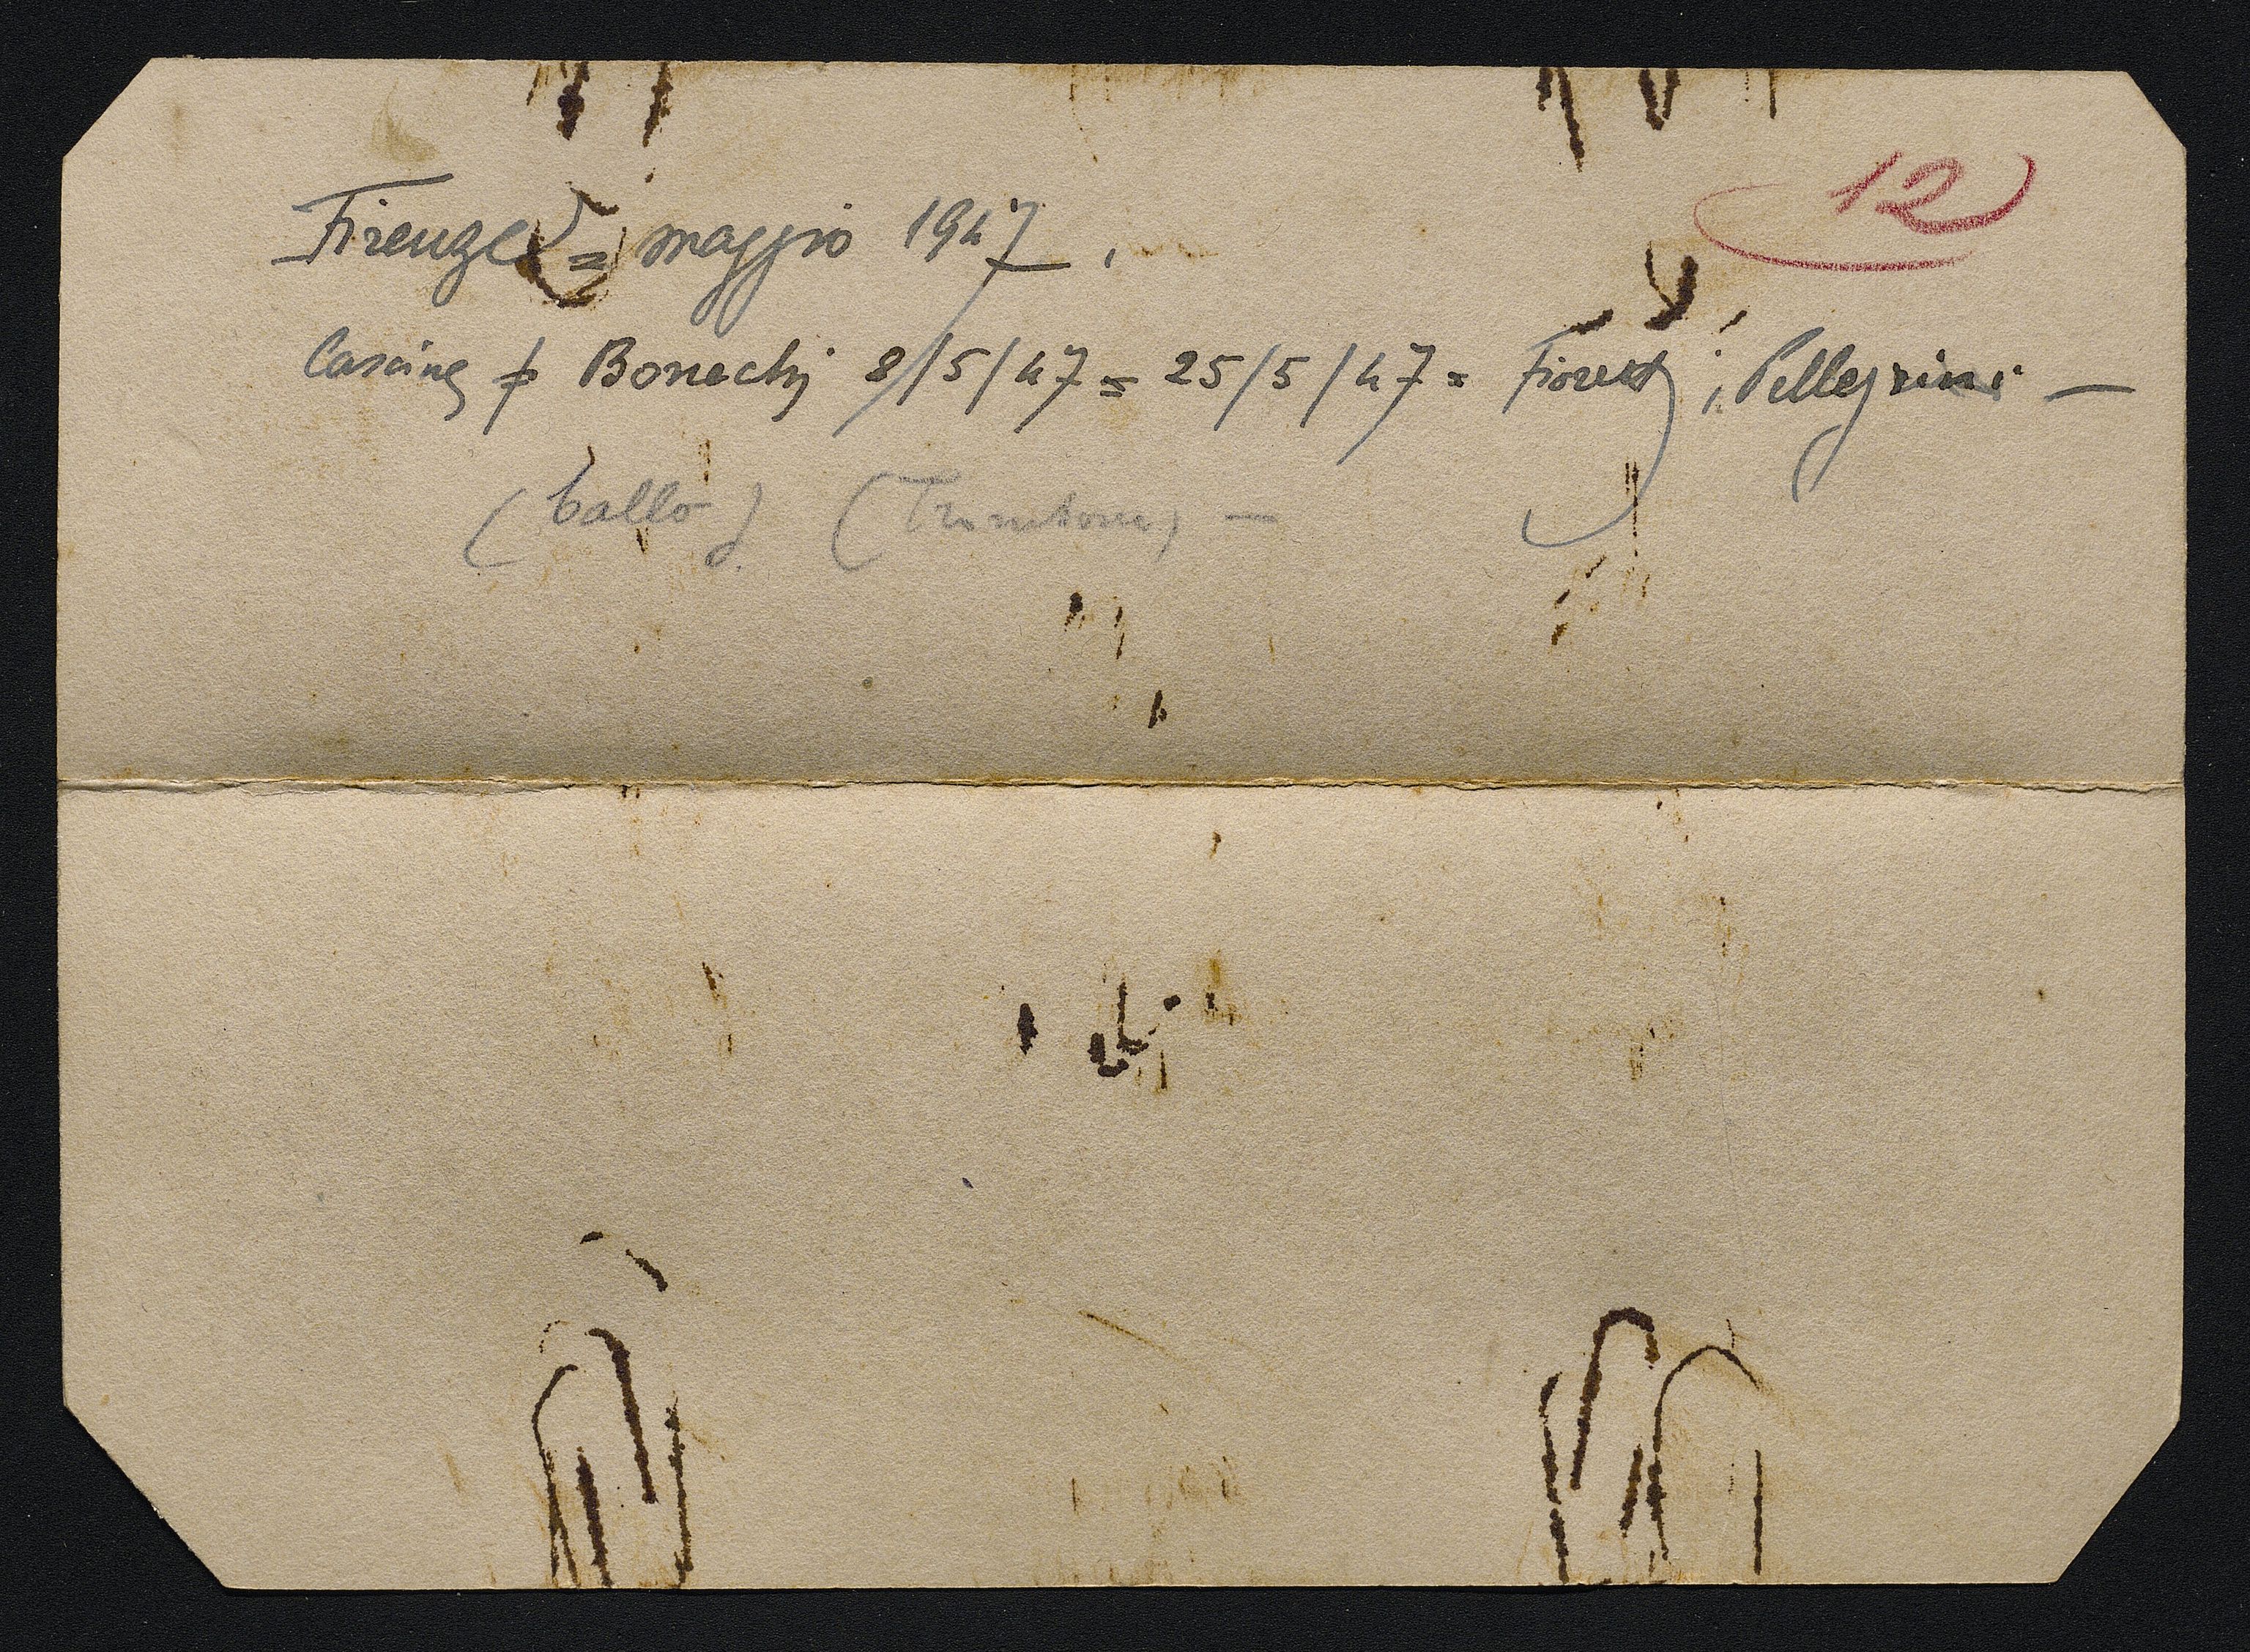 12
Firenze = maggio 1947.
Cascine Bonechi 8/5/47 = 25/5/47 = Pellegrini —
(ballo) (Trombone) —